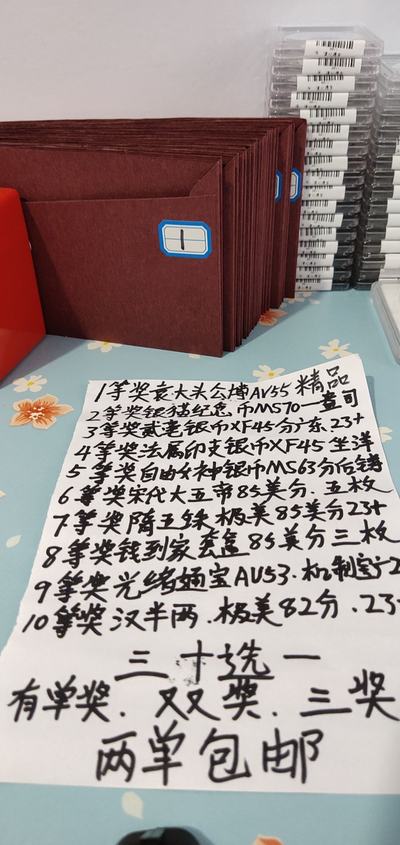 1
1等奖袁大头公博AU55精品
2等奖银猫纪念币MS70一盎司
3等奖贰毫银币XF45分广东23+
4等奖法属印支银币XF45坐洋
5等奖自由女神银币MS63分后铸
6等奖宋代大五帝85美分.五枚
7等奖隋五铢极美85美分23+
8等奖钱到家套盒85美分三枚
9等奖光绪通宝AU53.机制宝广2
10等奖汉半两.极美82分.23
三十选一
有单奖.双奖.三奖
两单包邮